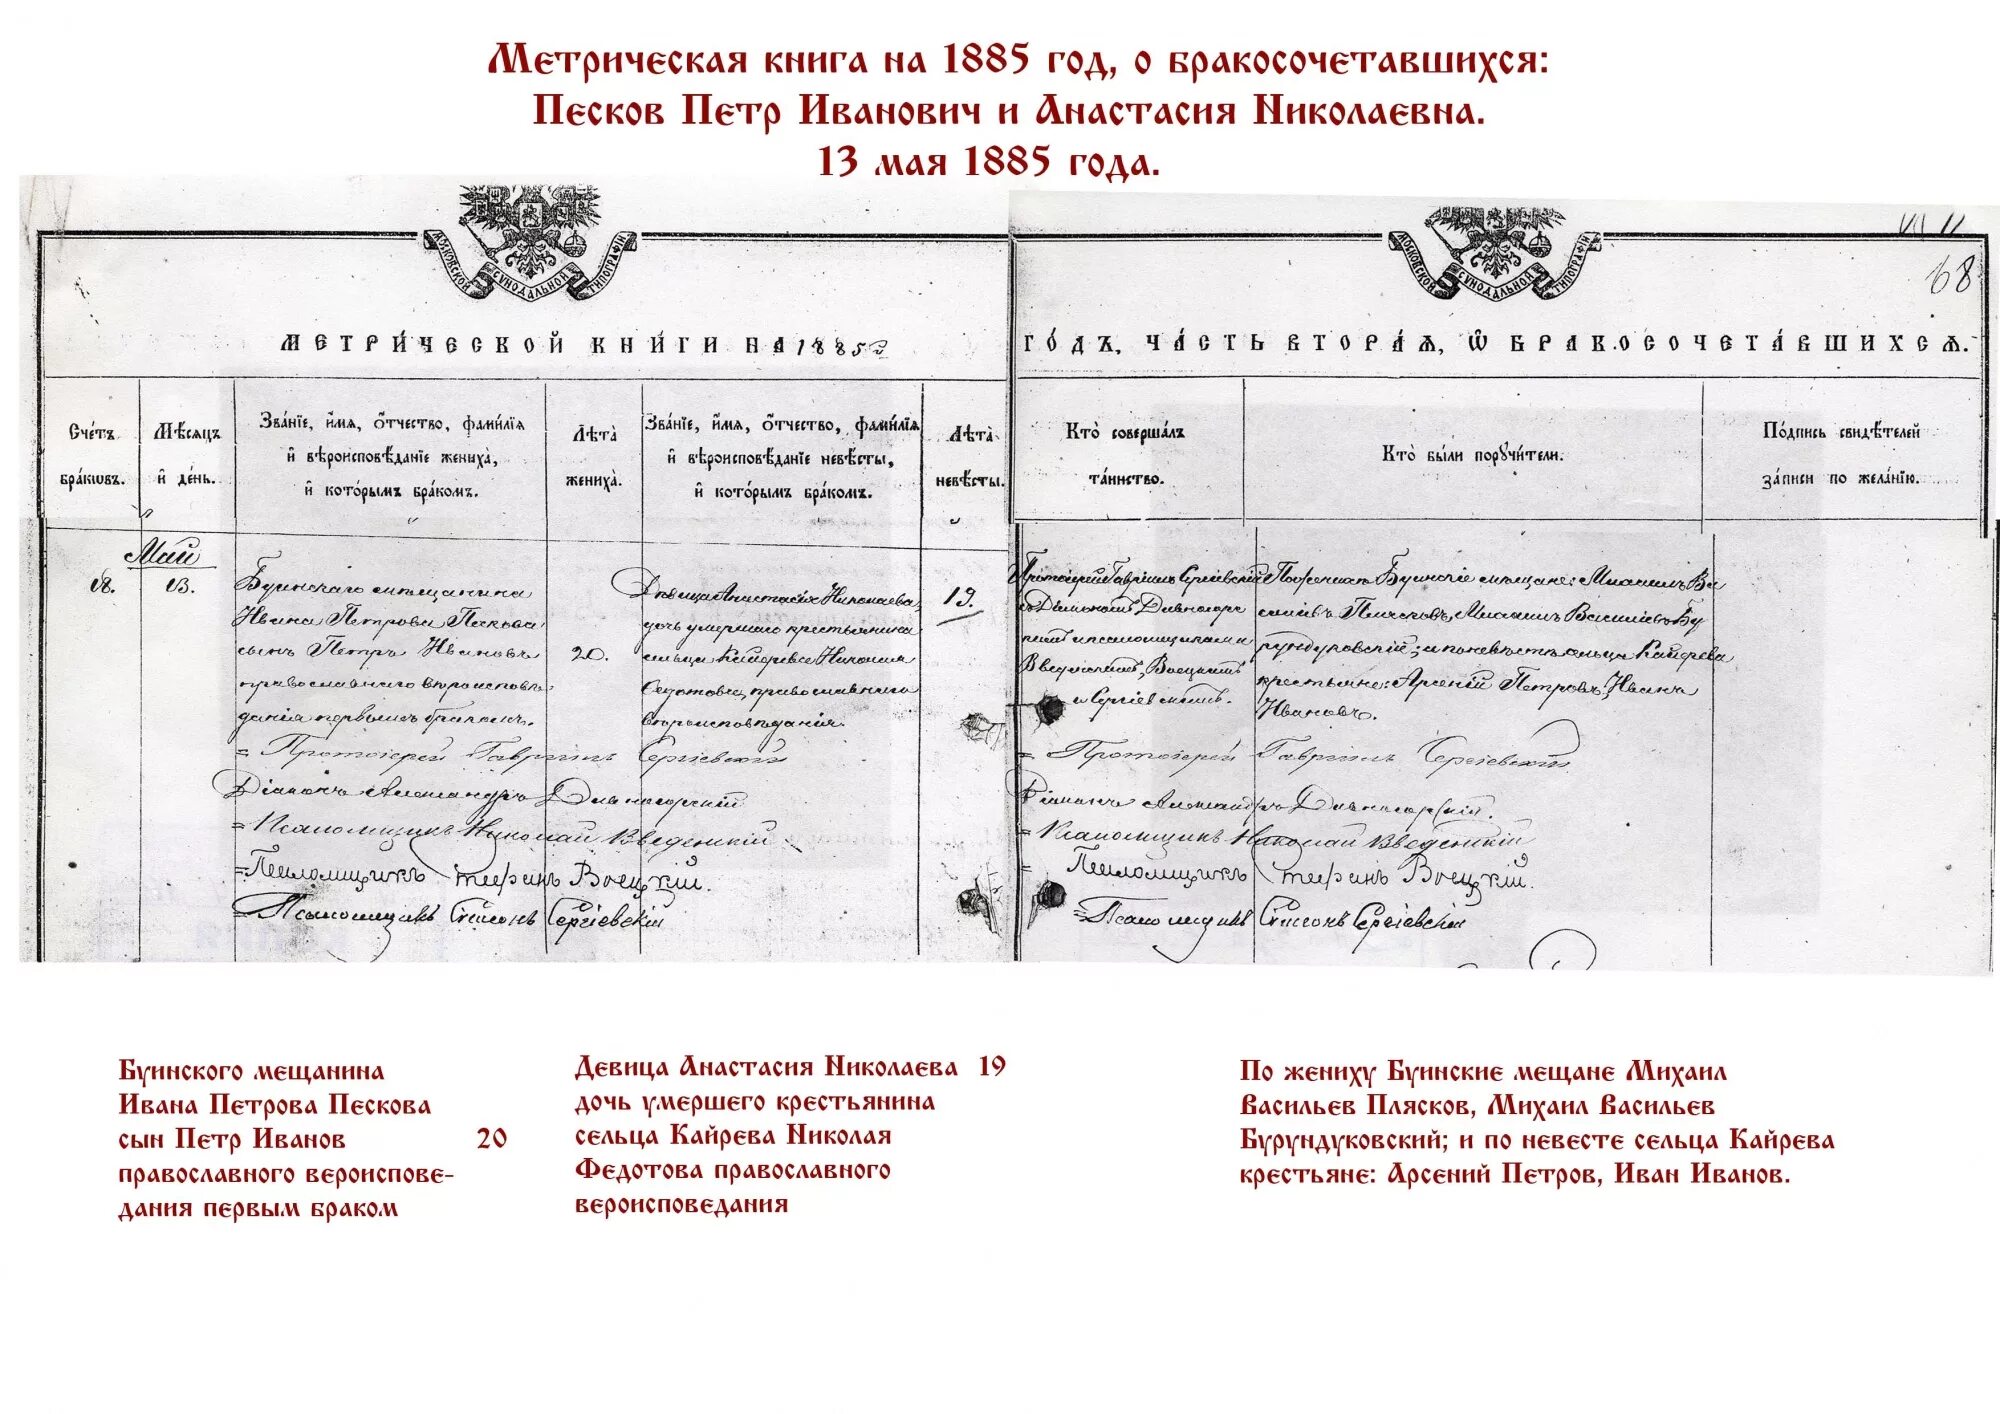 Метрическая книга на 1885 год, о бракосочетавшихся:
Песков Петр Иванович и Анастасия Николаевна.
13 мая 1885 года.
МОСКОВСКОЙ СѴНОДАЛЬНОЙ ТИПОГРАФІИ
МОСКОВСКОЙ СѴНОДАЛЬНОЙ ТИПОГРАФІИ
68
МЕТРИ́ЧЕСКОЙ КНИ́ГИ НА 1885
ГО́ДЪ, ЧА́СТЬ ВТОРА́Ѧ, Ѽ БРАКОСОЧЕТА́ВШИХСѦ.
Сче́тъ
бра́кѡвъ.
Мѣ́сяцъ
и҆ де́нь.
Зва́нїе, и҆́мѧ, ѻ҆́тчество, фами́лїѧ
и҆ вѣроисповѣ́данїе жениха̀,
и҆ кото́рымъ бра́комъ.
Лѣ́та
жениха̀.
Зва́нїе, и҆́мѧ, ѻ҆́тчество, фами́лїѧ
и҆ вѣроисповѣ́данїе невѣ́сты,
и҆ кото́рымъ бра́комъ.
Лѣ́та
невѣ́сты.
Кто̀ соверша́лъ
та́инство.
Кто̀ бы́ли порꙋчи́тели.
По́дпись свидѣ́телей
за́писи по жела́нїю.
Май
18.
13.
Буинскаго мѣщанина
Ивана Петрова Пескова
сынъ Петръ Ивановъ
православнаго вѣроисповѣ-
данія первымъ бракомъ.
20.
Дѣвица Анастасія Николаева,
дочь умершаго крестьянина
сельца Кайрева Николая
Ѳедотова, православнаго
вѣроисповѣданія
19.
Протоіерей Гавріилъ Сергіевскій
съ Діакономъ Дивногор-
скимъ и псаломщиками
Введенскимъ, Воецкимъ
и Сергіевскимъ.
По жениху Буинскіе мѣщане: Михаилъ Ва-
сильевъ Плясковъ, Михаилъ Васильевъ Бу-
рундуковскій; и по невѣстѣ сельца Кайрева
крестьяне: Арсеній Петровъ, Иванъ
Ивановъ.
= Протоіерей Гавріилъ Сергіевскій
Діаконъ Александръ Дивногорскій
= Псаломщикъ Николай Введенскій
= Псаломщикъ Воецкій.
= Псаломщикъ Симеонъ Сергіевскій
= Протоіерей Гавріилъ Сергіевскій
Діаконъ Александръ Дивногорскій.
= Псаломщикъ Николай Введенскій
= Псаломщикъ Воецкій.
= Псаломщикъ Симеонъ Сергіевскій
Буинского мещанина
Ивана Петрова Пескова
сын Петр Иванов 20
православного вероиспове-
дания первым браком
Девица Анастасия Николаева 19
дочь умершего крестьянина
сельца Кайрева Николая
Федотова православного
вероисповедания
По жениху Буинские мещане Михаил
Васильев Плясков, Михаил Васильев
Бурундуковский; и по невесте сельца Кайрева
крестьяне: Арсений Петров, Иван Иванов.